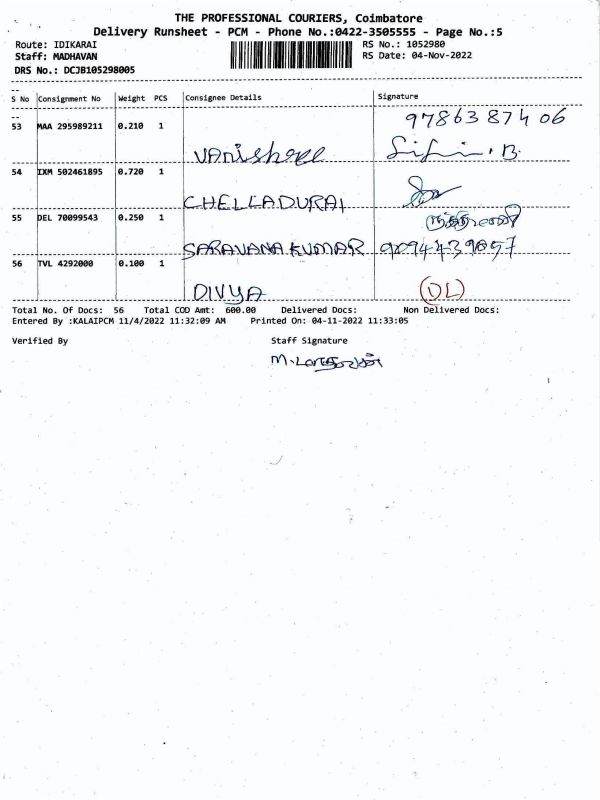 THE PROFESSIONAL COURIERS, Coimbatore
Delivery Runsheet - PCM - Phone No.:0422-3505555 - Page No.:5
Route: IDIKARAI RS No.: 1052980
Staff: MADHAVAN RS Date: 04-Nov-2022
DRS No.: DCJB105298005
S No Consignment No Weight PCS Consignee Details Signature
97863 87406
53 MAA 295989211 0.210 1
54 IXM 502461895 0.720 1
CHELLADURAI
55 DEL 70099543 0.250 1
SARAVANA KUMAR 9094439057
56 TVL 4292000 0.100 1
DIVYA (DL)
Total No. Of Docs: 56 Total COD Amt: 600.00 Delivered Docs: Non Delivered Docs:
Entered By :KALAIPCM 11/4/2022 11:32:09 AM Printed On: 04-11-2022 11:33:05
Verified By Staff Signature